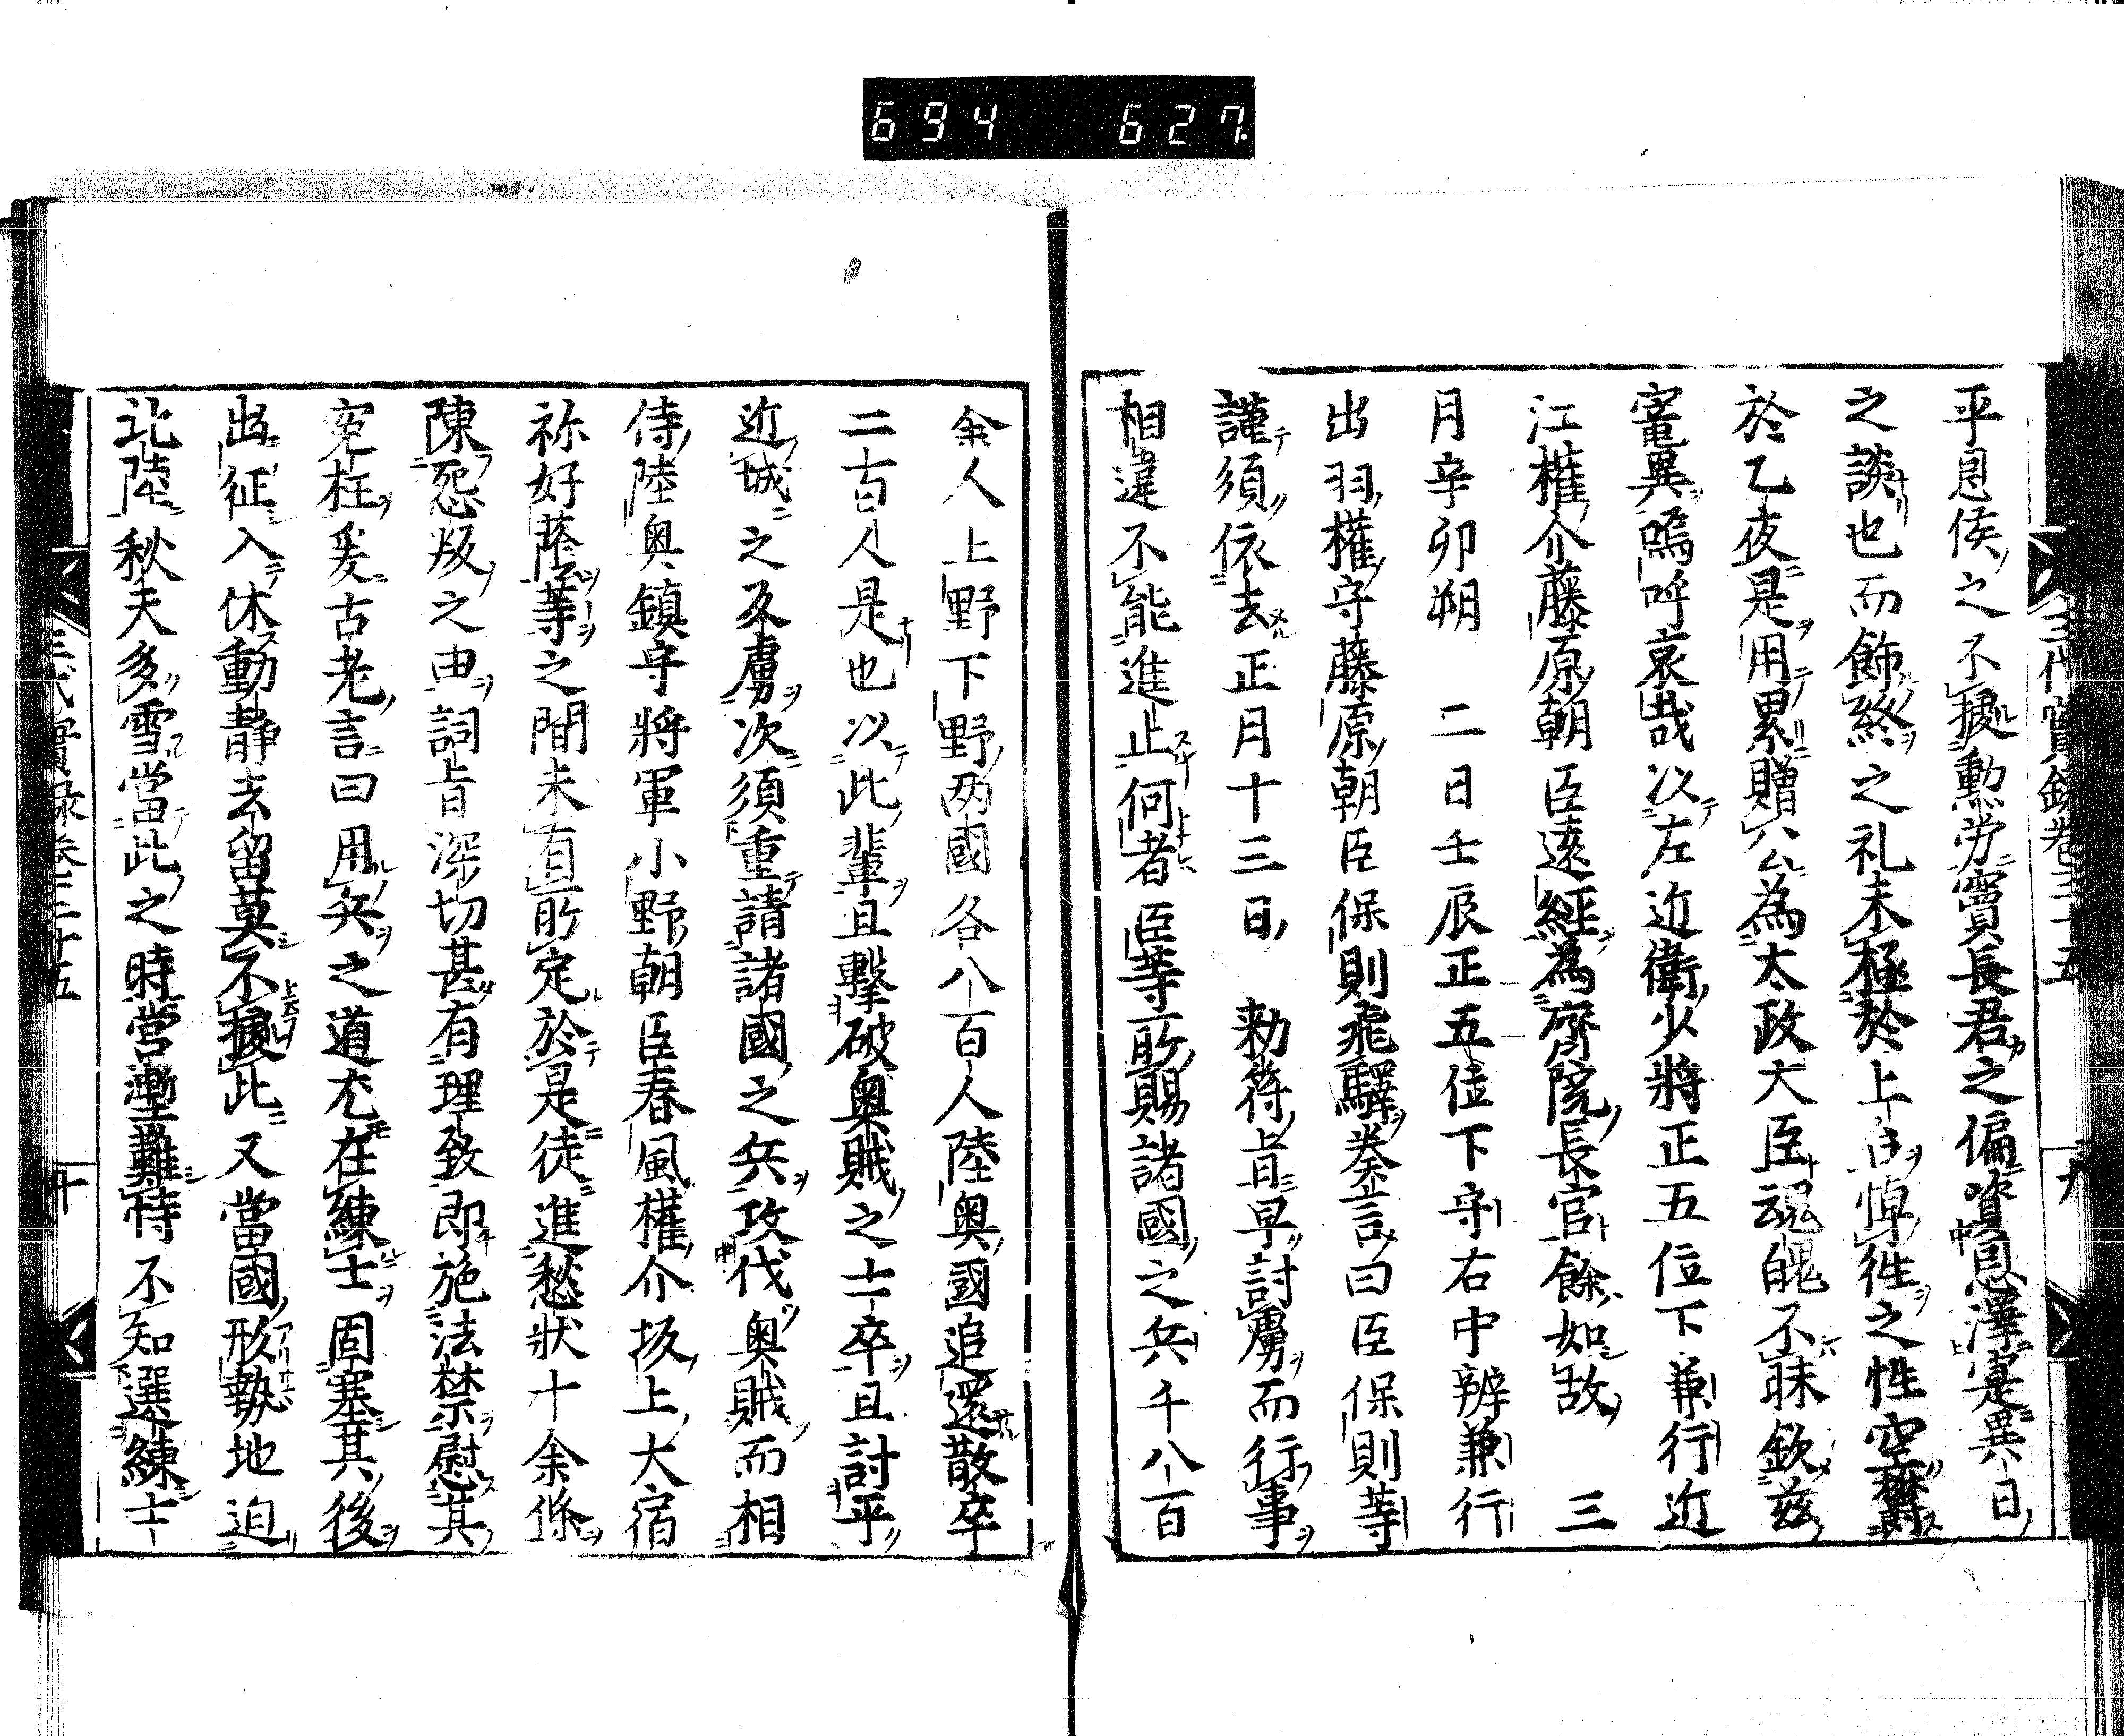 694 627
平恩侯之不據勲労竇長君之偏資恩澤寔異日
之談也而飾終之礼未極於上古悼徃之性空欝
於乙夜是用累贈公為太政大臣魂魄不昧欽兹
寵異嗚呼哀哉以左近衛少将正五位下兼行近
江權介藤原朝臣遠經為齊院長官餘如故 三
月辛卯朔 二日壬辰正五位下守右中辨兼行
出羽權守藤原朝臣保則飛驛奏言曰臣保則等
謹須依去正月十三日 勅符旨早討虜而行事
相違不能進止何者臣等所賜諸國之兵千八百
余人上野下野两國各八百人陸奥國追還散卒
二百人是也以此輩且撃破奥賊之士卒且討平
近城之叛虜次須重請諸國之兵攻伐奥賊而相
待陸奥鎮守将軍小野朝臣春風權介坂上大宿
祢好蔭等之間未有所定於是徒進愁状十余條
陳怨叛之由詞旨深切甚有理致即施法禁慰其
寃枉爰古老言曰用兵之道尤在練士固塞其後
出征入休動静去留莫不據此又當國形執地迫
北陸秋天多雪當此之時營壍難恃不知選練士
三代實録卷三十五 十